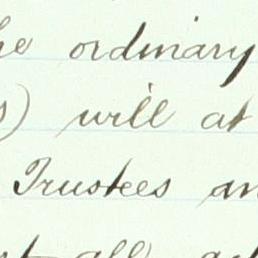 he ordinary
s) will at
Trustees an
all